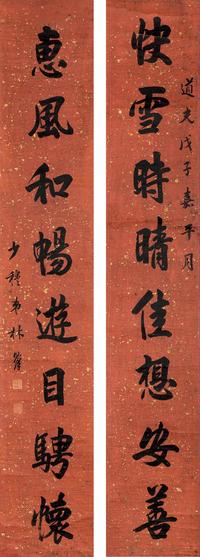 道光戊子嘉平月
快雪時晴佳想安善
惠風和暢遊目騁懷
少穆弟林